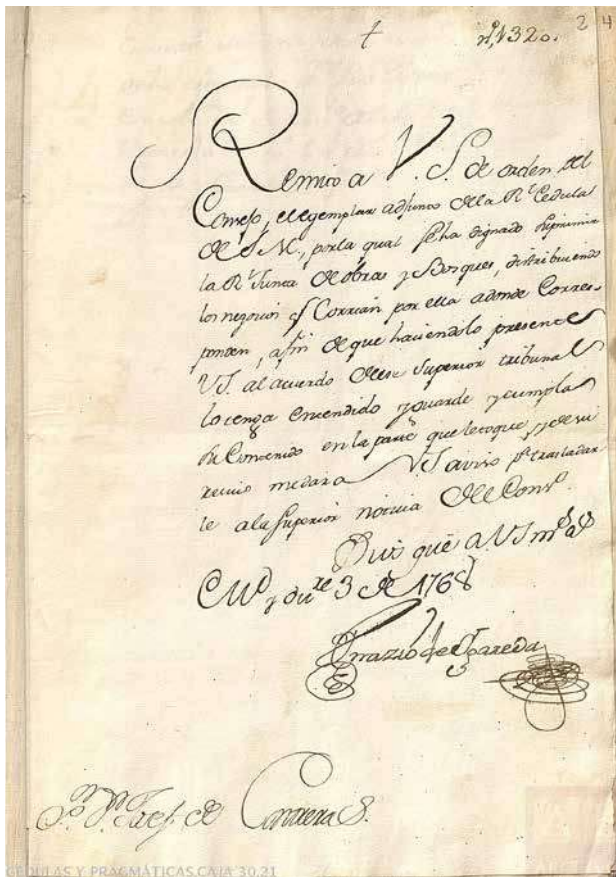 nº 1320.
24
Remito a V. S. de orden del
Consejo, el egemplar adjunto de la Rl. Cedula
de S M., por la qual se ha dignado suprimir
la Rl. Junta de obras y Bosques, distribuiendo
los negocios q corrian por ella adonde corres-
ponden, a fin de que haciendolo presente
VS. al acuerdo de ese Superior tribunal
lo tenga entendido y guarde y cumpla
su contenido en la parte que le toque, y de su
recivo me dara VS aviso pa. trasladar-
le a la superior noticia del Consº.
Dios gue a VS ms. as.
Md. y dizre 3 de 1768
Ignazio de Igareda
Sor. Dn. de Contreras.
CEDULAS Y PRAGMÁTICAS,CAJA 30,21